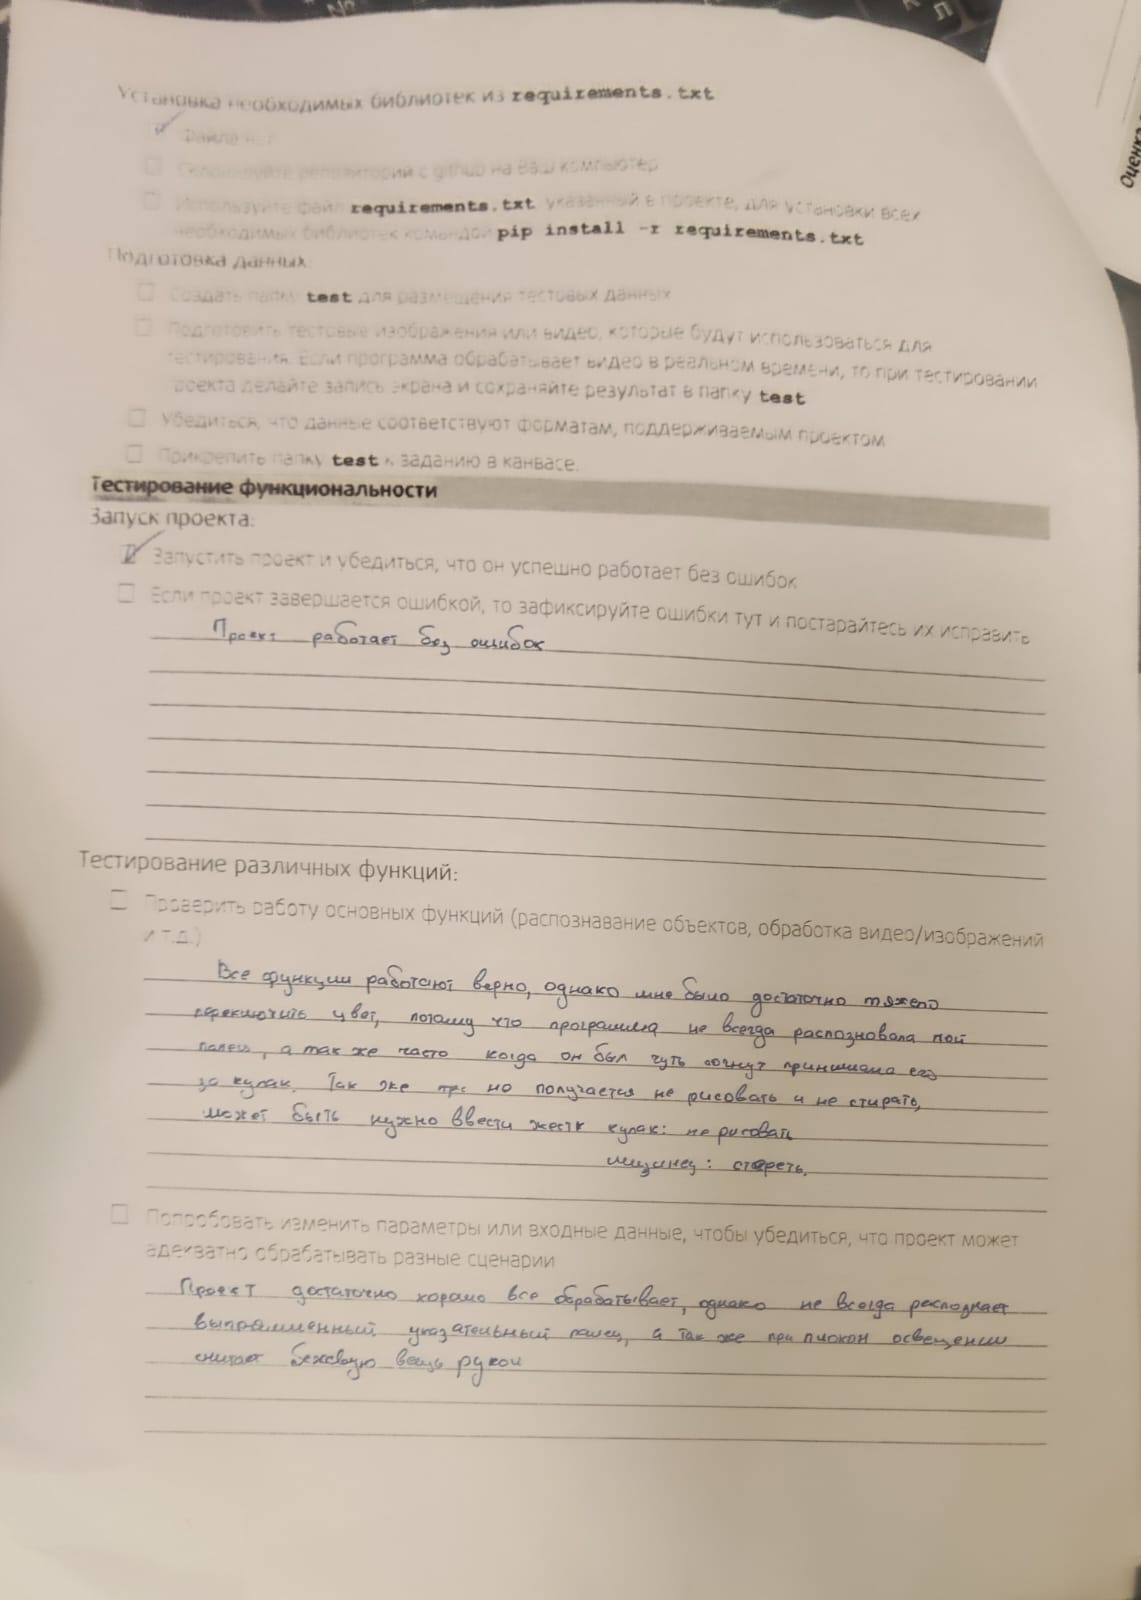 Установка необходимых библиотек из requirements.txt
Файла нет
Склонируйте репозиторий с github на Ваш компьютер
Используйте файл requirements.txt указанный в проекте, для установки всех
необходимых библиотек командой pip install -r requirements.txt
Подготовка данных:
Создать папку test для размещения тестовых данных
Подготовить тестовые изображения или видео, которые будут использоваться для
тестирования. Если программа обрабатывает видео в реальном времени, то при тестировании
проекта делайте запись экрана и сохраняйте результат в папку test
Убедиться, что данные соответствуют форматам, поддерживаемым проектом
Прикрепить папку test к заданию в канвасе.
Тестирование функциональности
Запуск проекта:
Запустить проект и убедиться, что он успешно работает без ошибок
Если проект завершается ошибкой, то зафиксируйте ошибки тут и постарайтесь их исправить
Проект работает без ошибок
Тестирование различных функций:
Проверить работу основных функций (распознавание объектов, обработка видео/изображений
и т.д.)
Все функции работают верно, однако мне было достаточно тяжело
переключить цвет, потому что программа не всегда распозновала мой
палец, а так же часто когда он был чуть согнут принимала его
за кулак. Так же но получается не рисовать и не стирать,
может быть нужно ввести жест кулак: не рисовать
мизинец: стереть.
Попробовать изменить параметры или входные данные, чтобы убедиться, что проект может
адекватно обрабатывать разные сценарии
Проект достаточно хорошо все обрабатывает, однако не всегда распознает
выпрямленный указательный палец, а так же при плохом освещении
считает бежевую вещь рукой
Оценка